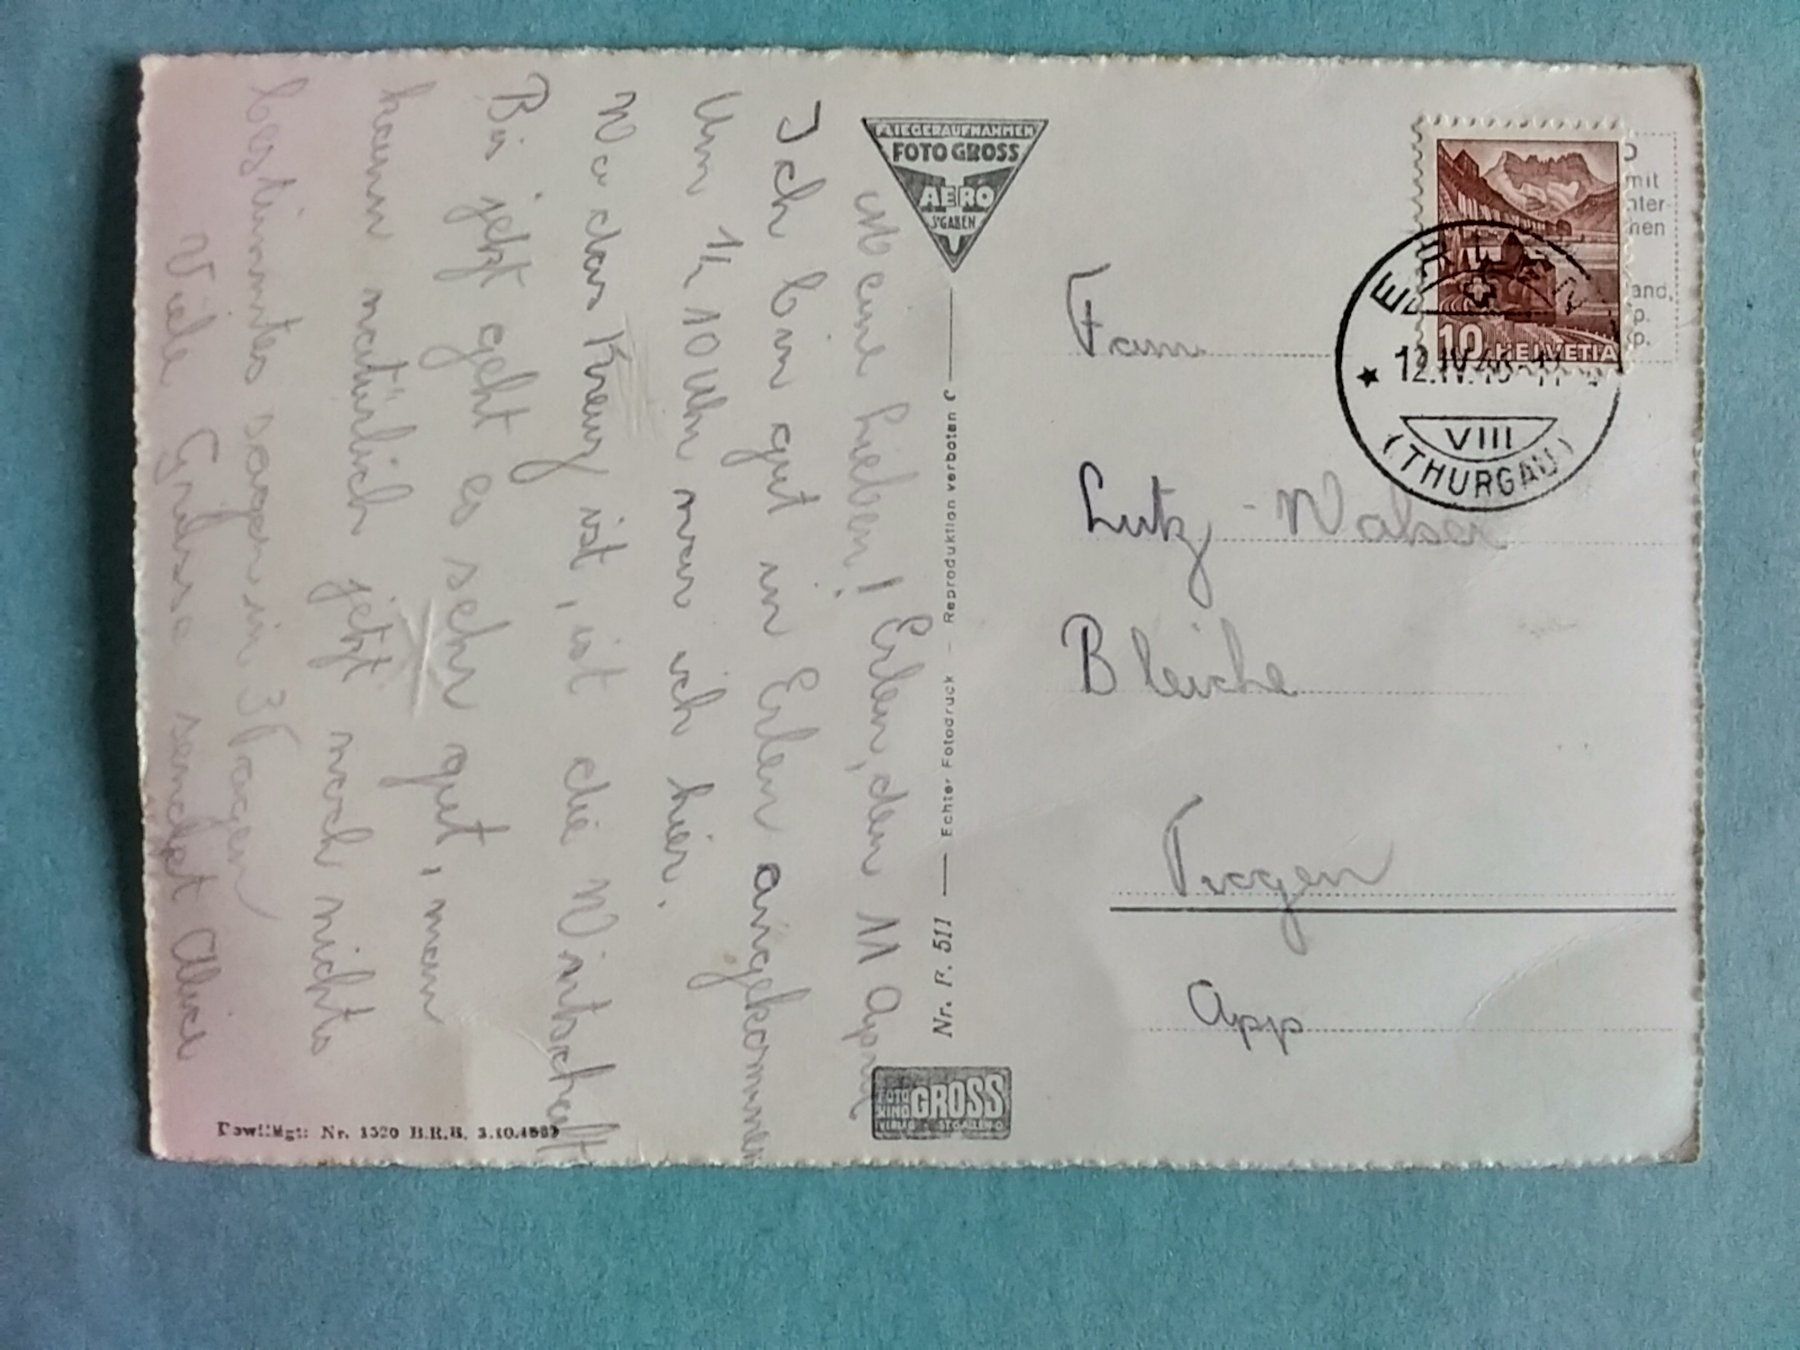 Meine Lieben! Erlen, den 11 April
Ich bin gut in Erlen angekommen
Um 1/2 10 Uhr war ich hier.
Wo das Kreuz ist, ist die Wirtschaft
Bis jetzt geht es sehr gut, man
kann natürlich jetzt noch nichts
bestimmtes sagen in 3 Tagen
Viele Grüsse sendet Alice
Bewilligt: Nr. 1520 B.R.B. 3.10.1939
FLIEGERAUFNAHMEN
FOTO GROSS
AERO
ST GALLEN
Nr. F. 511 — Echter Fotodruck - Reproduktion verboten C
FOTO
KINO
GROSS
VERLAG ST.GALLEN O.
Fam
Lutz - Walser
Bleiche
Trogen
App
mit
nter-
hen
and,
p.
sp.
10 HELVETIA
ERLEN
12.IV.
VIII
(THURGAU)